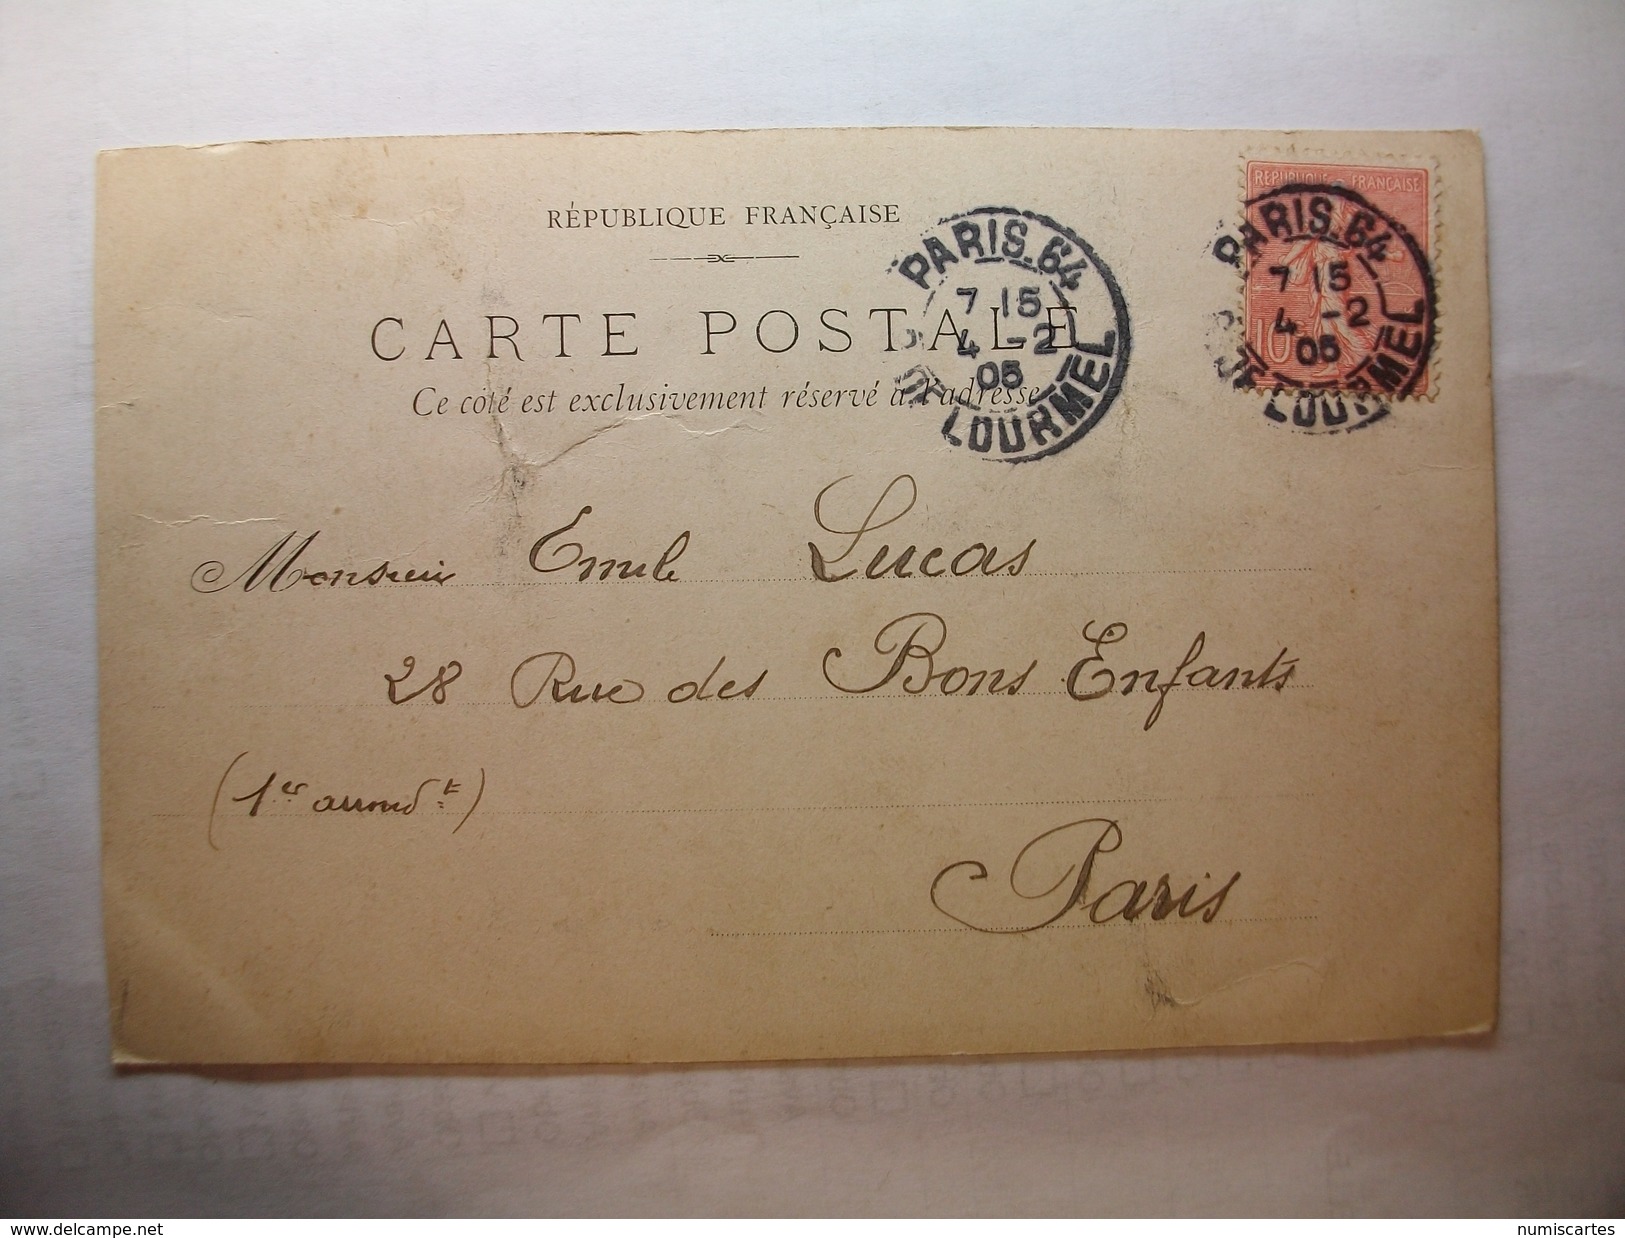 RÉPUBLIQUE FRANÇAISE
CARTE POSTALE
Ce côté est exclusivement réservé à l'adresse
REPUBLIQUE FRANÇAISE
10
PARIS_64
7 15
4 -2
05
LOURMEL
PARIS_64
7 15
4 -2
05
LOURMEL
Monsieur Emile Lucas
28 Rue des Bons Enfants
(1er arrondt)
Paris
www.delcampe.net
numiscartes